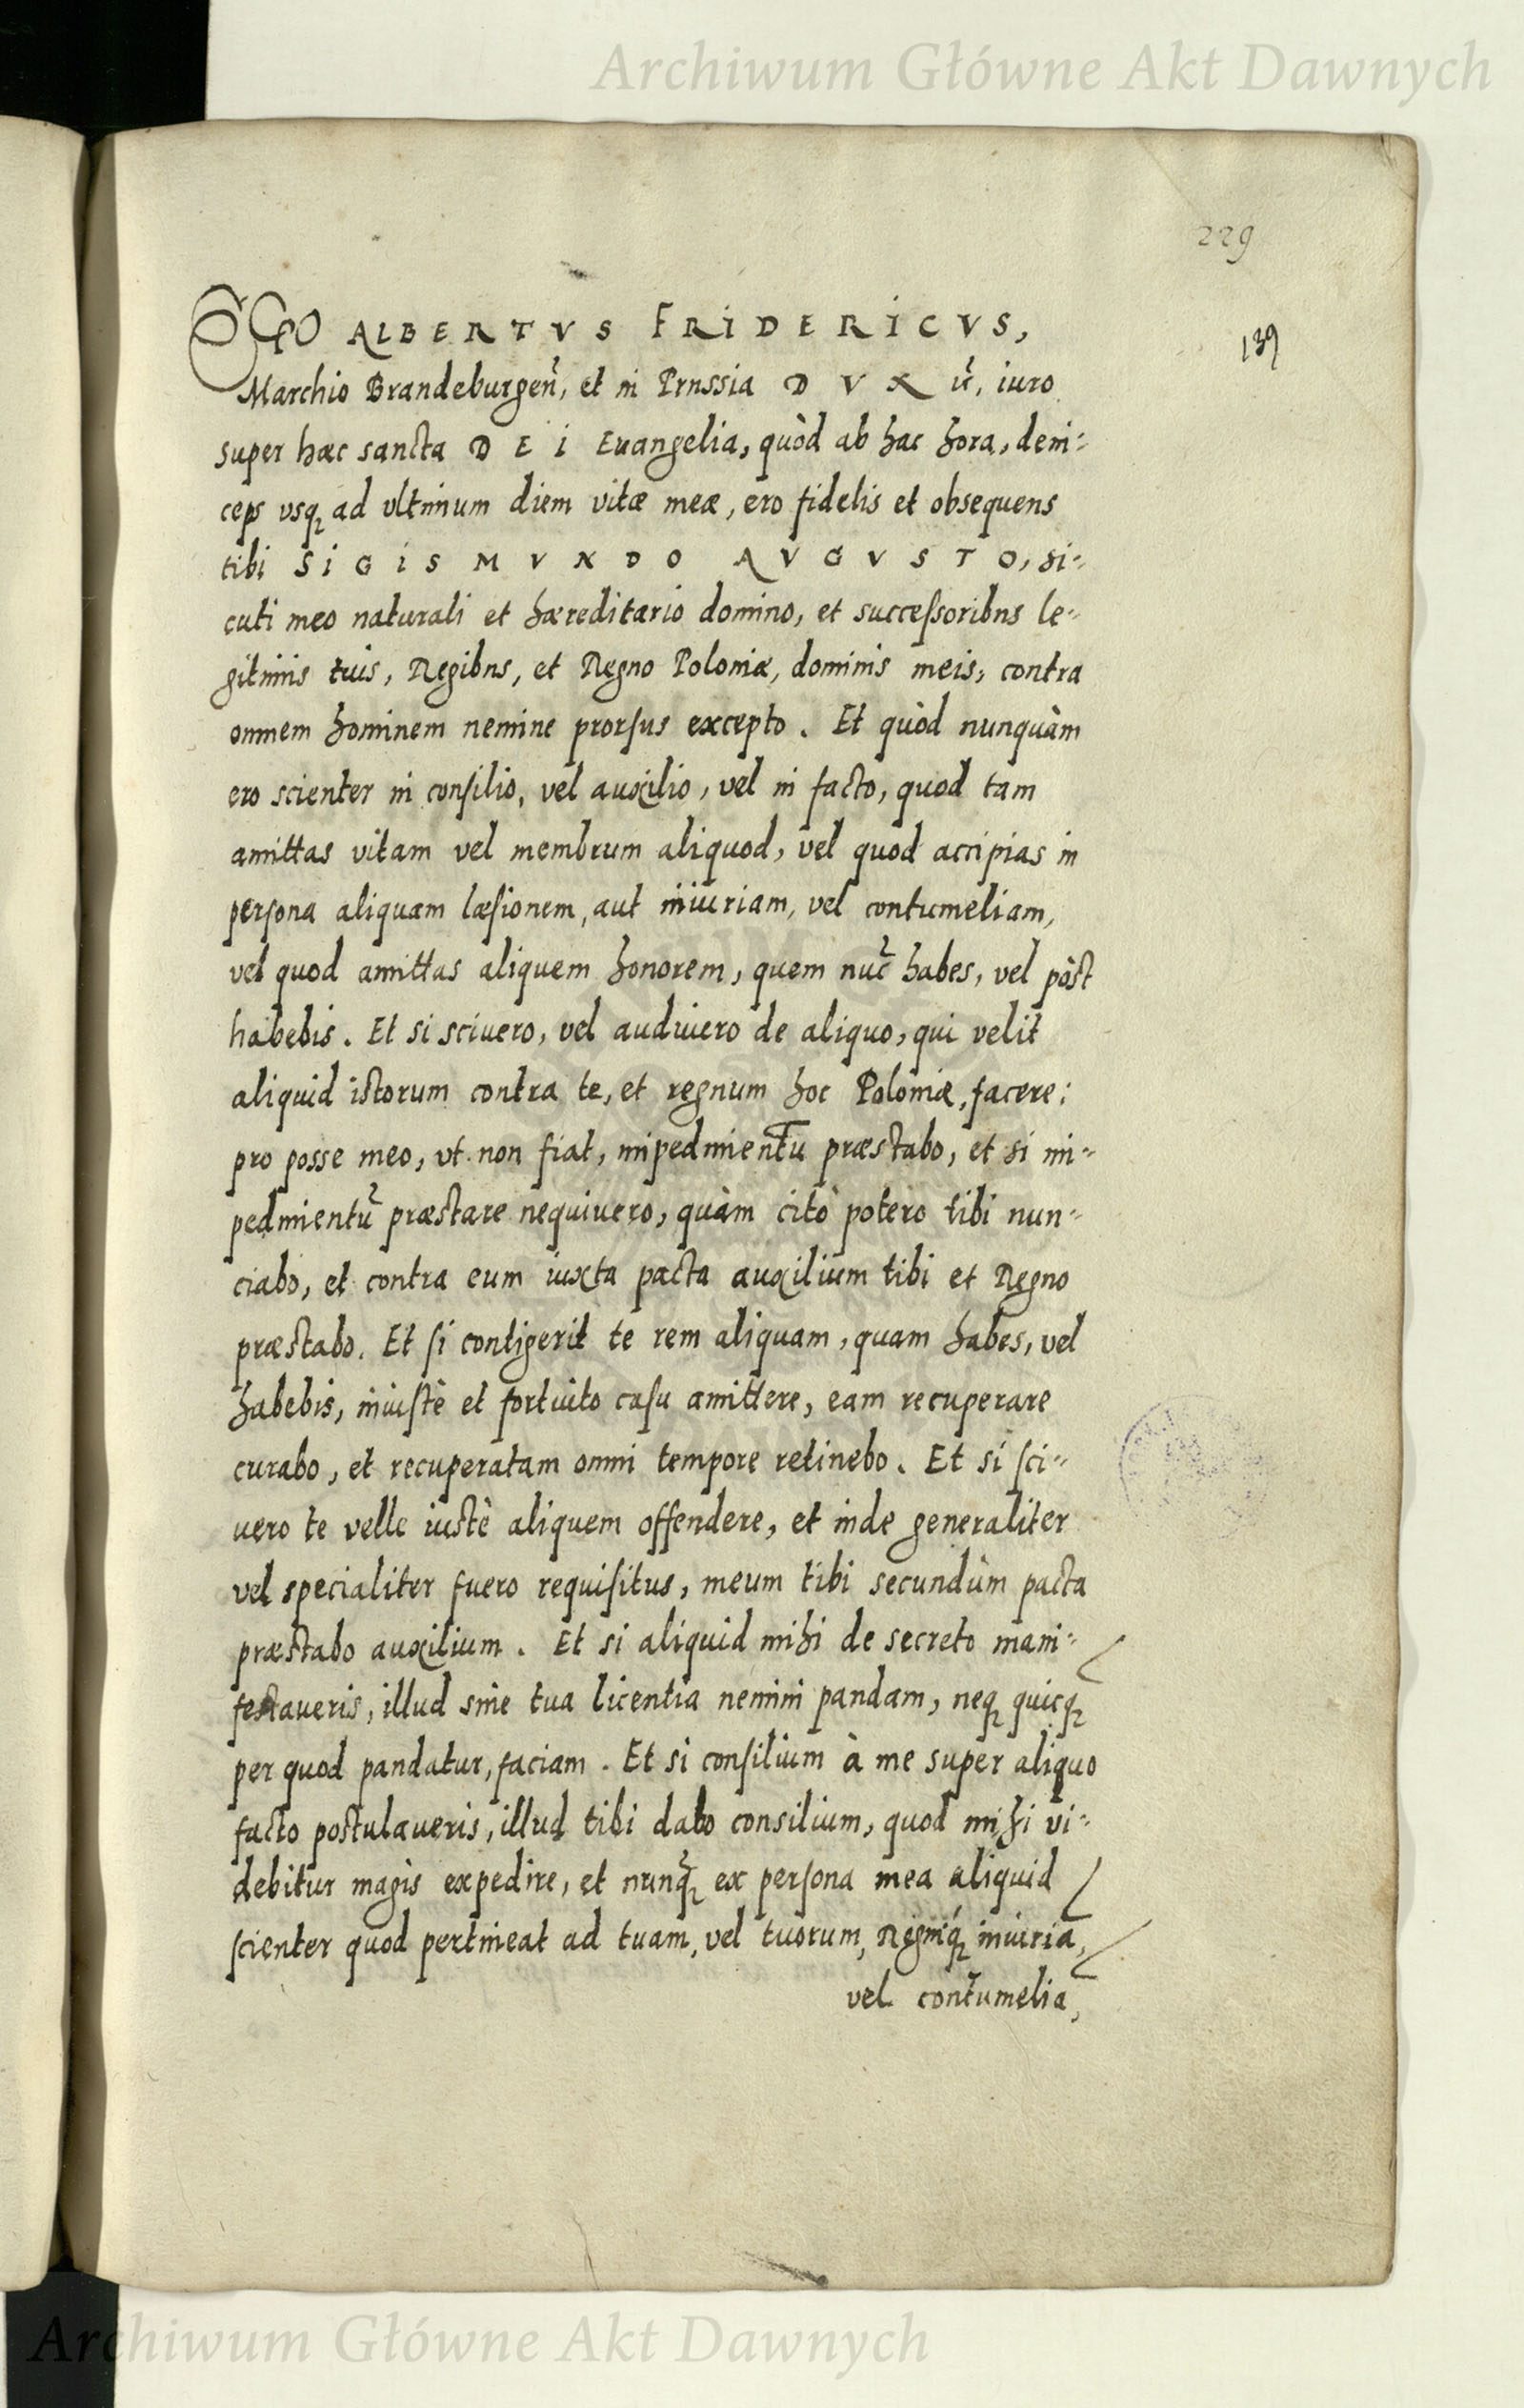 Archiwum Główne Akt Dawnych
229
139
EGO ALBERTVS FRIDERICVS,
Marchio Brandeburgeñ, et in Prussia DVX ct̃, iuro
super haec sancta DEI Euangelia, quòd ab hac hora, dein-
ceps vsq₃ ad vltimum diem vitæ meæ, ero fidelis et obsequens
tibi SIGISMVNDO AVGVSTO, si-
cuti meo naturali et hæreditario domino, et successoribus le-
gitimis tuis, Regibus, et Regno Poloniæ, dominis meis, contra
omnem hominem nemine prorsus excepto. Et quòd nunquàm
ero scienter in consilio, vel auxilio, vel in facto, quod tam
amittas vitam vel membrum aliquod, vel quod accipias in
persona aliquam læsionem, aut iniuriam, vel contumeliam,
vel quod amittas aliquem honorem, quem nuc̃ habes, vel pòst
habebis. Et si scivero, vel audiuero de aliquo, qui velit
aliquid istorum contra te, et regnum hoc Poloniæ, facere:
pro posse meo, vt non fiat, impedimentũ præstabo, et si im-
pedimentũ præstare nequiuero, quàm citò potero tibi nun-
ciabo, et contra eum iuxta pacta auxilium tibi et Regno
præstabo. Et si contigerit te rem aliquam, quam habes, vel
habebis, iniustè et fortuito casu amittere, eam recuperare
curabo, et recuperatam omni tempore retinebo. Et si sci-
uero te velle iustè aliquem offendere, et inde generaliter
vel specialiter fuero requisitus, meum tibi secundùm pacta
præstabo auxilium. Et si aliquid mihi de secreto mani-
festaueris, illud sine tua licentia nemini pandam, neq₃ quicq₃
per quod pandatur, faciam. Et si consilium à me super aliquo
facto postulaueris, illud tibi dabo consilium, quod mihi vi-
debitur magis expedire, et nunq̃₃ ex persona mea aliquid
scienter quod pertineat ad tuam, vel tuorum, Regniq́₃ iniuria,
vel contumelia,
Archiwum Główne Akt Dawnych